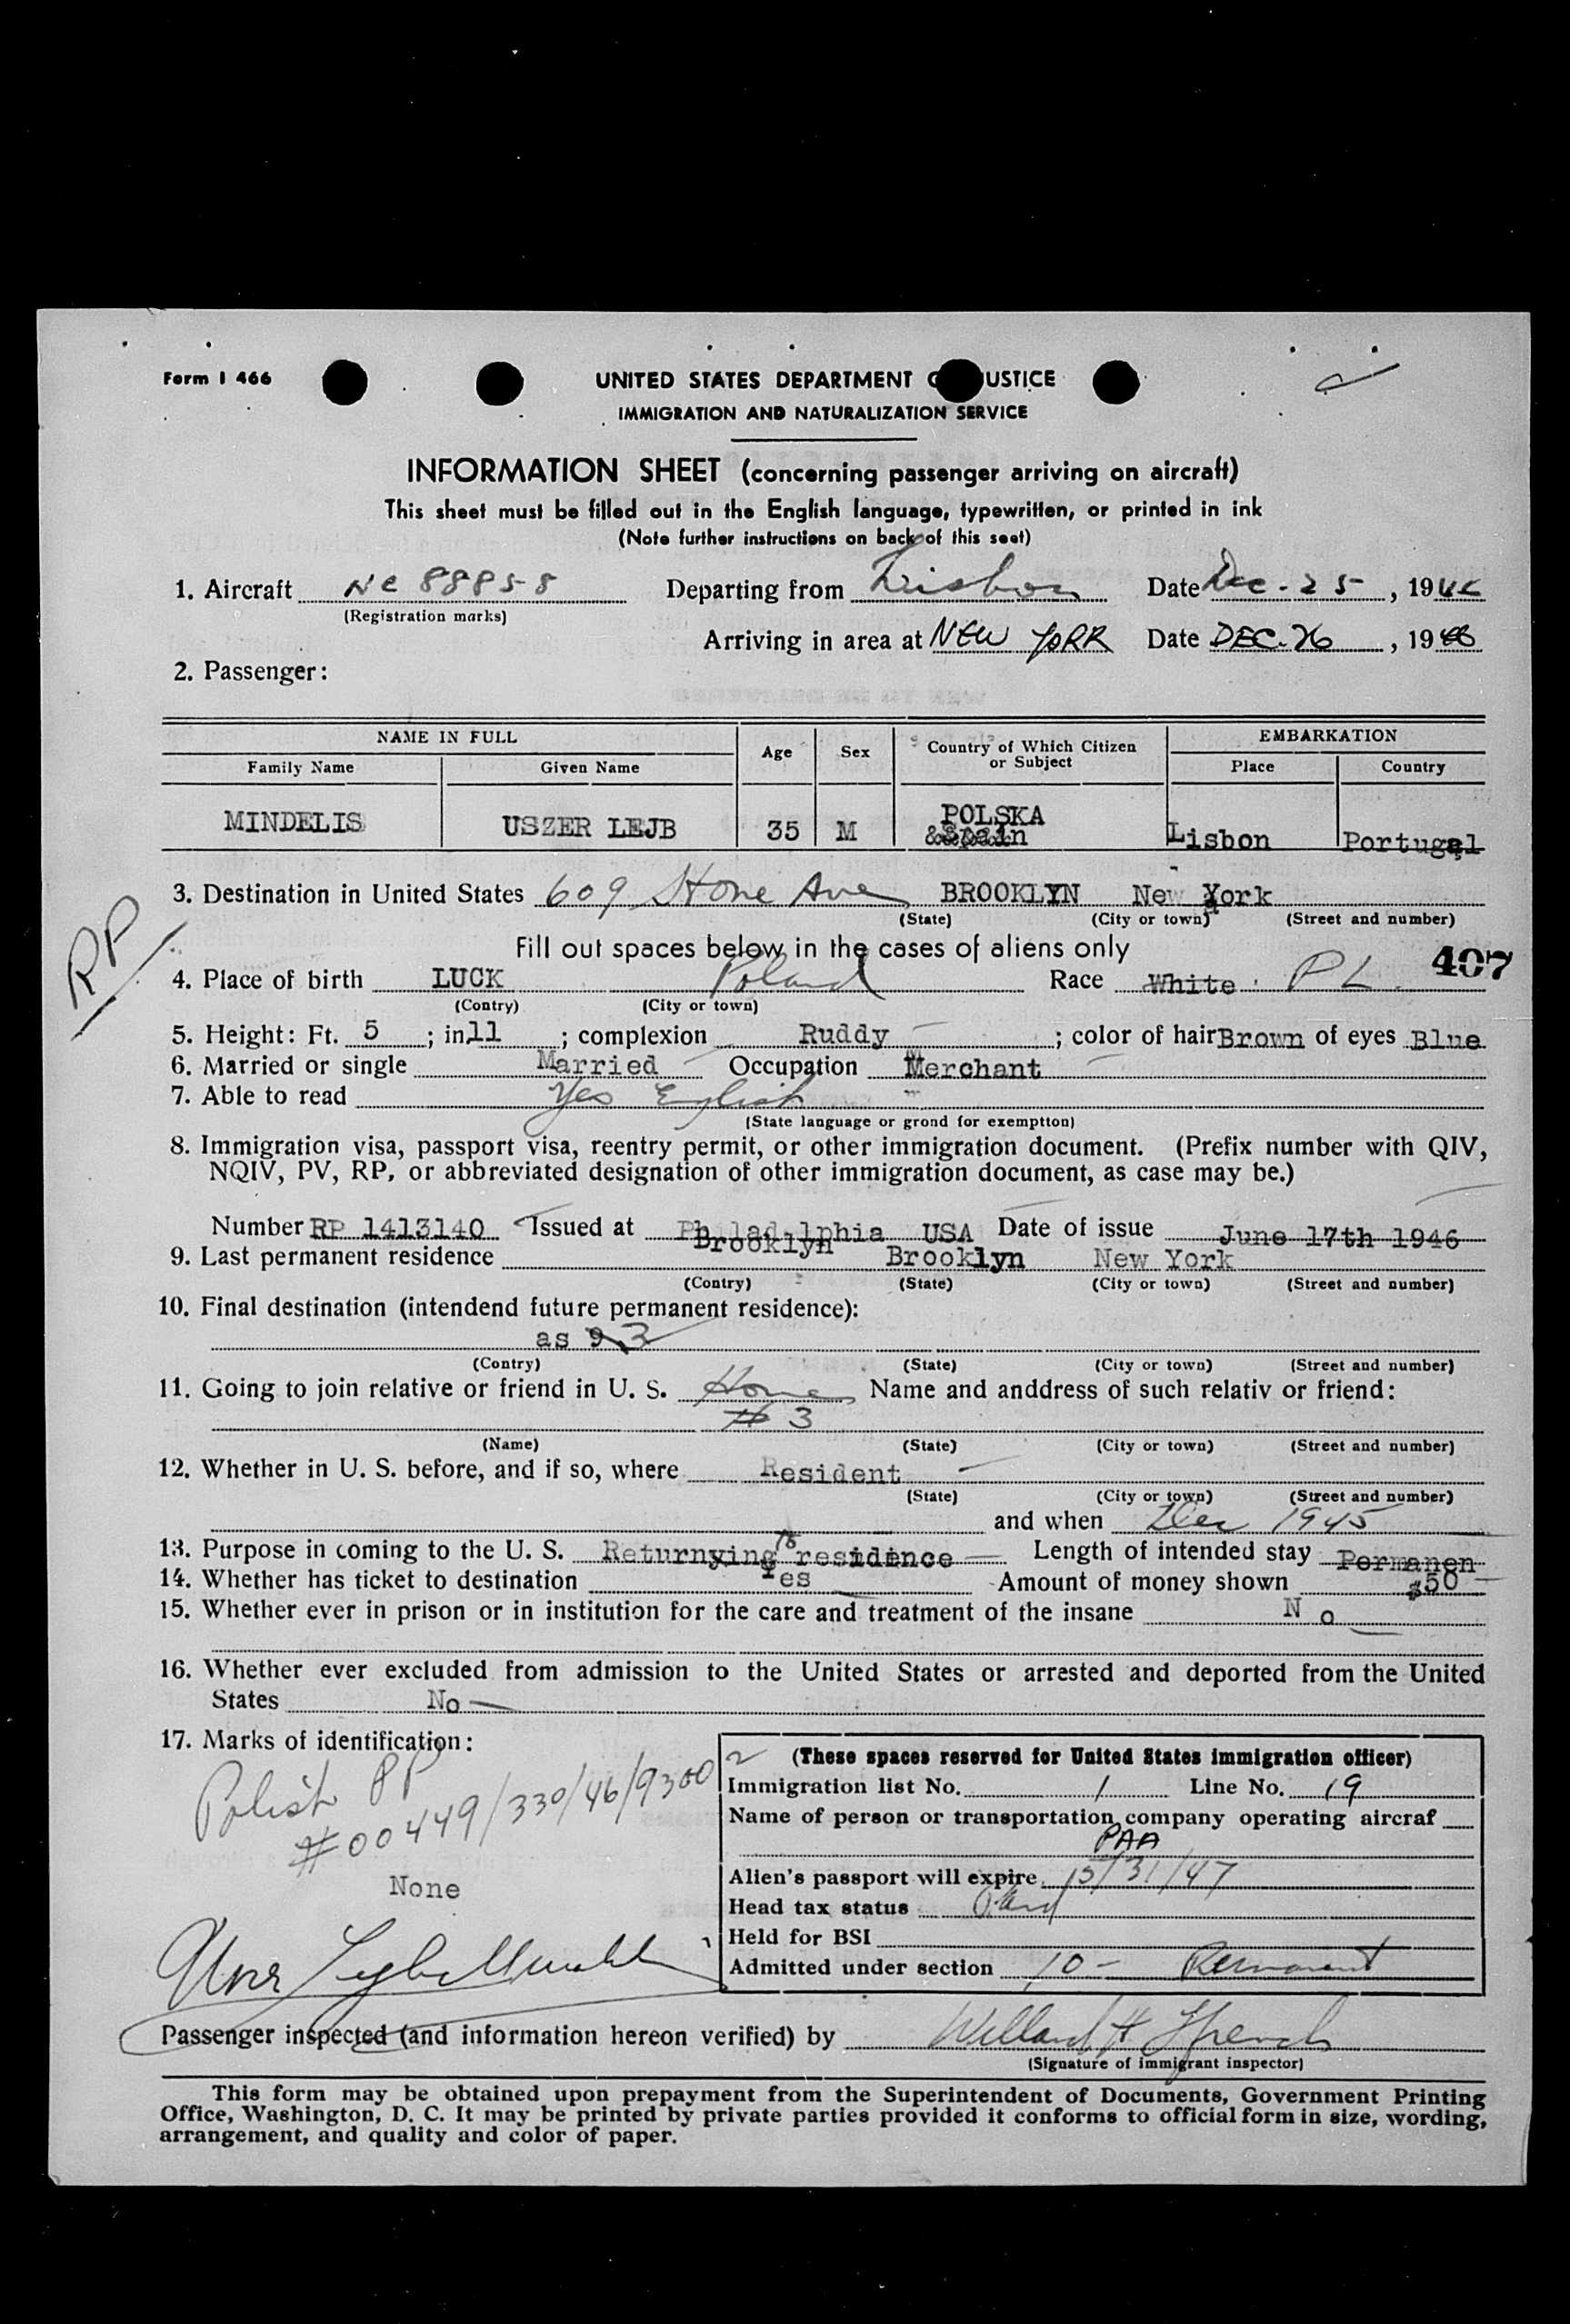 Form I 466
UNITED STATES DEPARTMENT O USTICE
IMMIGRATION AND NATURALIZATION SERVICE
INFORMATION SHEET (concerning passenger arriving on aircraft)
This sheet must be filled out in the English language, typewritten, or printed in ink
(Note further instructions on back of this seet)
1. Aircraft NC 88858 Departing from Lisbon Date Dec - 25, 1946
(Registration marks)
Arriving in area at NEW YORK Date DEC. 26, 19
2. Passenger:
NAME IN FULL Age Sex Country of Which Citizen or Subject EMBARKATION
Family Name Given Name Place Country
MINDELIS USZER LEJB 35 M POLSKA Lisbon Portugal
Spain
3. Destination in United States 609 Stone Ave BROOKLYN New York
(State) (City or town) (Street and number)
RP
Fill out spaces below in the cases of aliens only
407
4. Place of birth LUCK Poland Race White PL
(Contry) (City or town)
5. Height: Ft. 5; in. 11; complexion Ruddy; color of hair Brown of eyes Blue
6. Married or single Married Occupation Merchant
7. Able to read Yes English
(State language or grond for exemptton)
8. Immigration visa, passport visa, reentry permit, or other immigration document. (Prefix number with QIV,
NQIV, PV, RP, or abbreviated designation of other immigration document, as case may be.)
Number RP 1413140 Issued at Philadelphia USA Date of issue June 17th 1946
9. Last permanent residence Brooklyn Brooklyn New York
(Contry) (State) (City or town) (Street and number)
10. Final destination (intendend future permanent residence):
as 9 3
(Contry) (State) (City or town) (Street and number)
11. Going to join relative or friend in U. S. Home Name and anddress of such relativ or friend:
# 3
(Name) (State) (City or town) (Street and number)
12. Whether in U. S. before, and if so, where Resident
(State) (City or town) (Street and number)
and when Dec 1945
13. Purpose in coming to the U. S. Returnying to residence Length of intended stay Permanen
14. Whether has ticket to destination Yes Amount of money shown $50
15. Whether ever in prison or in institution for the care and treatment of the insane No
16. Whether ever excluded from admission to the United States or arrested and deported from the United
States No
17. Marks of identification:
Polish PP
#00449/330/46/9300
None
(These spaces reserved for United States immigration officer)
Immigration list No. 1 Line No. 19
Name of person or transportation company operating aircraf
PAA
Alien's passport will expire 31/47
Head tax status Paid
Held for BSI
Admitted under section 10 - Permanent
Passenger inspected (and information hereon verified) by Willard H French
(Signature of immigrant inspector)
This form may be obtained upon prepayment from the Superintendent of Documents, Government Printing
Office, Washington, D. C. It may be printed by private parties provided it conforms to official form in size, wording,
arrangement, and quality and color of paper.